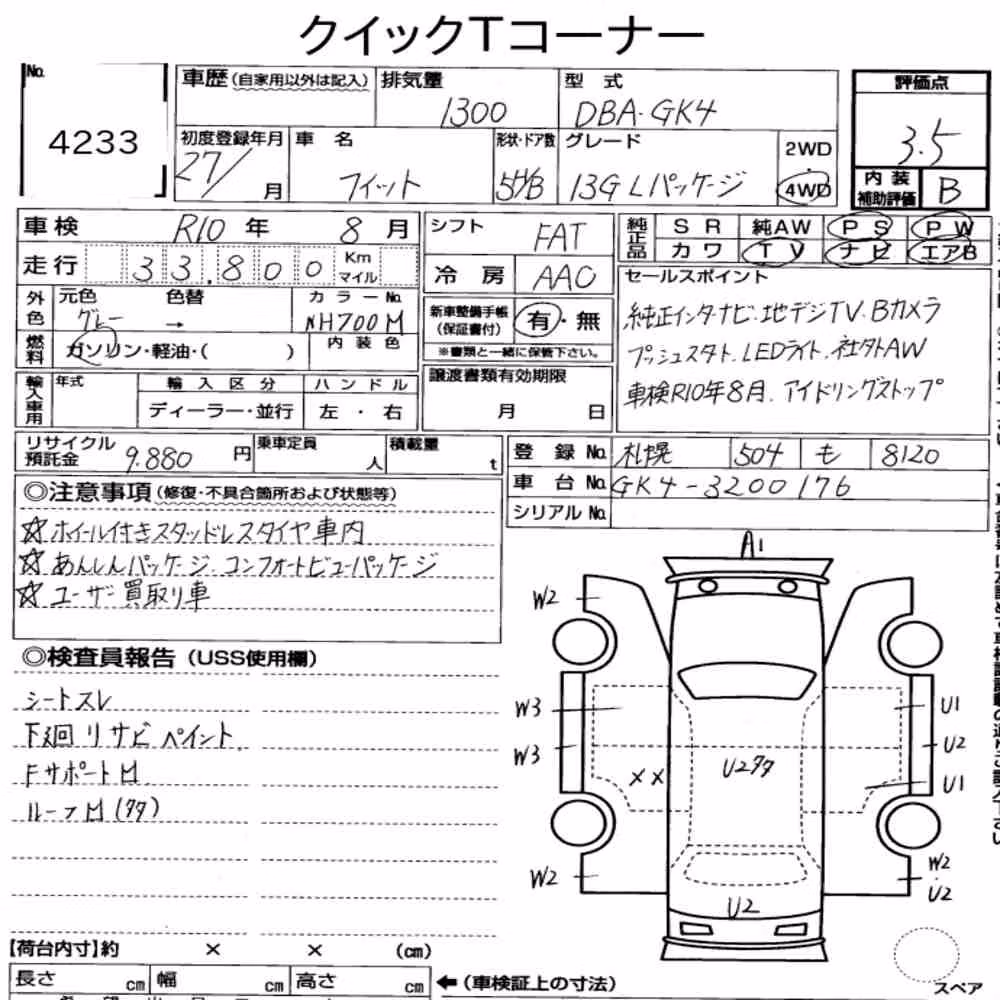 クイックTコーナー
No. 4233
車歴(自家用以外は記入) 排気量 1300 型 式 DBA-GK4 評価点 3.5
初度登録年月 27/ 月 車 名 フィット 形状・ドア数 5H/B グレード 13G Lパッケージ 2WD 4WD
内 装 補助評価 B
車検 R10 年 8 月 シフト FAT 純正品 S R 純AW P S P W
走行 33,800 Km マイル カ ワ T V ナ ビ エアB
冷 房 AAC セールスポイント
外色 元色 グレー 色替 → カラーNo. NH700M
新車整備手帳 (保証書付) 有・無
※書類と一緒に保管下さい。
燃料 ガソリン・軽油・( ) 内 装 色
純正インターナビ.地デジTV.Bカメラ
プッシュスタート.LEDライト.社外AW
車検R10年8月.アイドリングストップ
輸入車用 年式 輸 入 区 分 ハ ン ド ル
ディーラー・並行 左 ・ 右
譲渡書類有効期限
月 日
リサイクル預託金 9.880 円 乗車定員 人 積載量 t
登 録 No. 札幌 504 も 8120
車 台 No. GK4-3200176
シリアル No.
◎注意事項(修復・不具合箇所および状態等)
☆ホイール付きスタッドレスタイヤ車内
☆あんしんパッケージ.コンフォートビューパッケージ
☆ユーザー買取り車
◎検査員報告(USS使用欄)
シートスレ
下廻リサビペイント
FサポートM
ルーフM(タタ)
A1
W2
W3 U1
W3 U2
XX U2タタ U1
W2 W2
U2 U2
スペア
【荷台内寸】約 × × (cm)
長さ cm 幅 cm 高さ cm ←(車検証上の寸法)